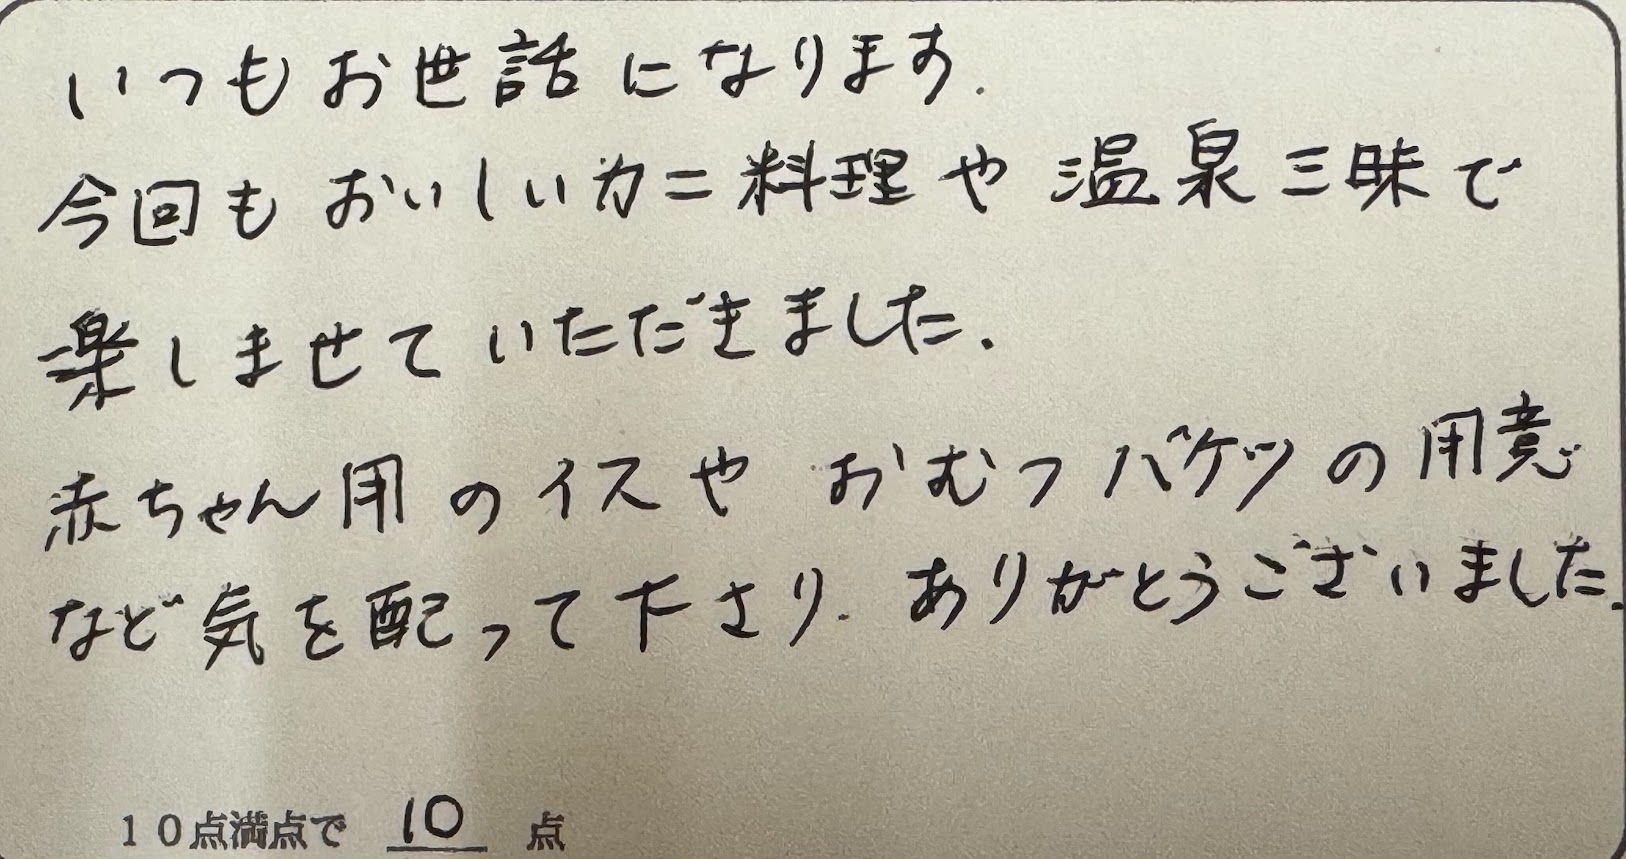 いつもお世話になります.
今回もおいしいカニ料理や温泉三昧で
楽しませていただきました.
赤ちゃん用のイスやおむつバケツの用意
など気を配って下さり.ありがとうございました.
10点満点で 10 点